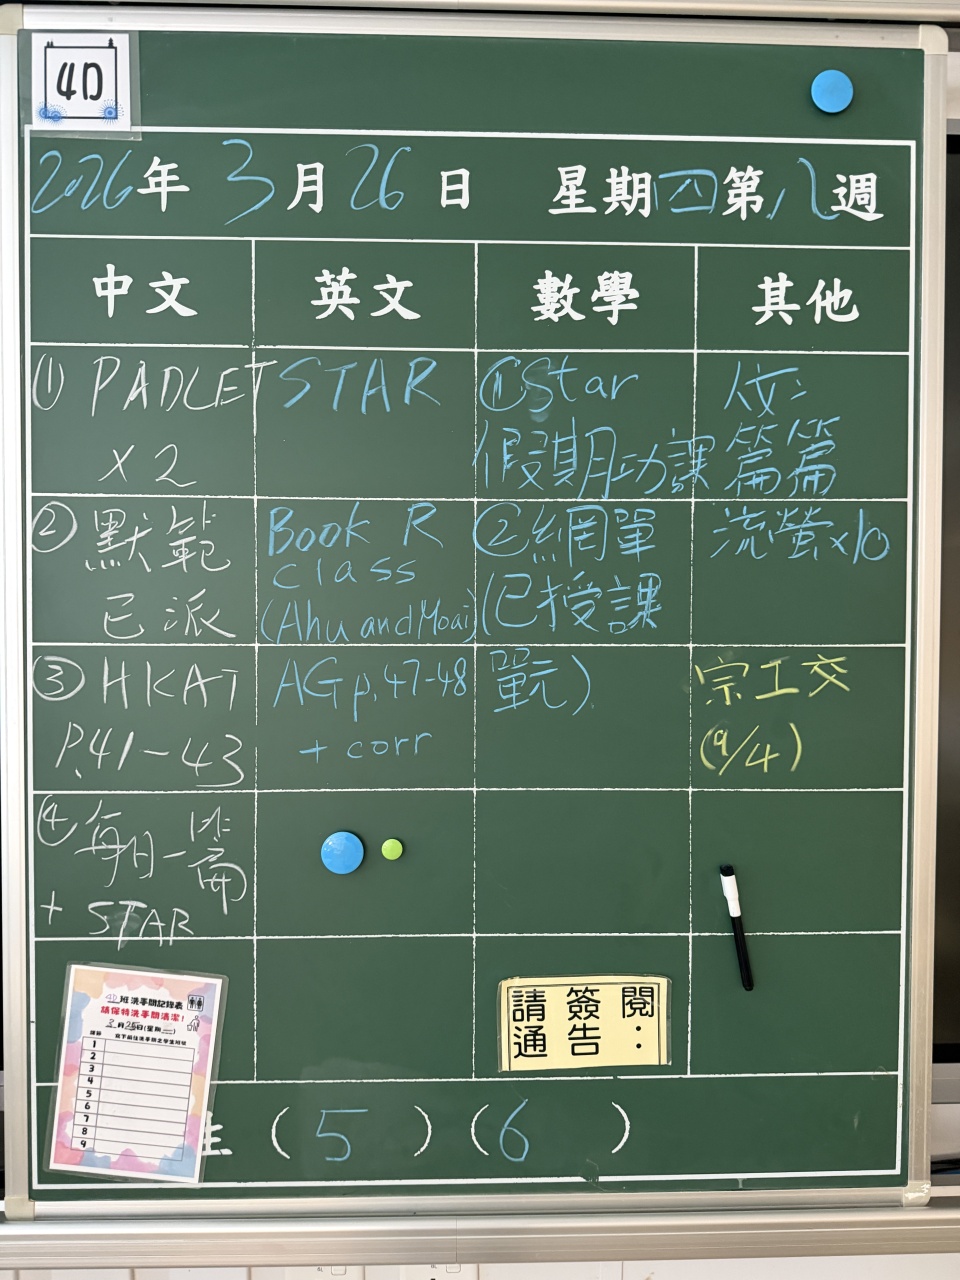 4D
2026年3月26日 星期四第八週
中文 英文 數學 其他
① PADLET
x2
② 默範
已派
③ HKAT
P.41-43
④ 每日一篇
+ STAR
STAR
Book R
class
(Ahu and Moai)
AG p.47-48
+ corr
① Star
假期功課
② 網單
(已授課
單元)
篇篇
流螢x10
宗工交
(9/4)
4D班洗手間記錄表
請保持洗手間清潔!
1
2
3
4
5
6
7
8
9
請簽閱
通告:
生 (5) (6)